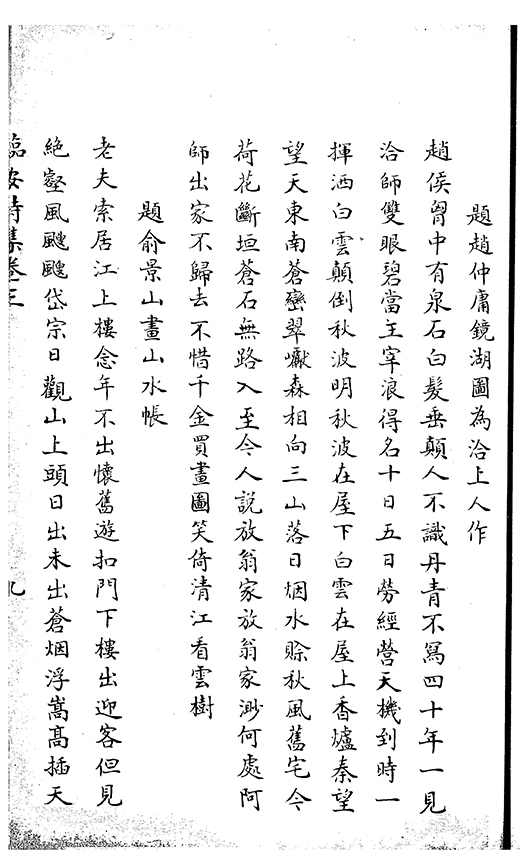 題趙仲庸鏡湖圖為洽上人作
趙侯胷中有泉石白髮垂顛人不識丹青不寫四十年一見
洽師雙眼碧當王宰浪得名十日五日勞經營天機到時一
揮洒白雲顛倒秋波明秋波在屋下白雲在屋上香爐秦望
望天東南蒼巒翠巘森相向三山落日烟水賒秋風舊宅今
荷花斷垣蒼石無路入至今人說放翁家放翁家渺何處阿
師出家不歸去不惜千金買畫圖笑倚清江看雲樹
題俞景山畫山水帳
老夫索居江上樓念年不出懷舊遊扣門下樓出迎客但見
絶壑風颼颼岱宗日觀山上頭日出未出蒼烟浮嵩髙插天
臨安詩集卷三
九